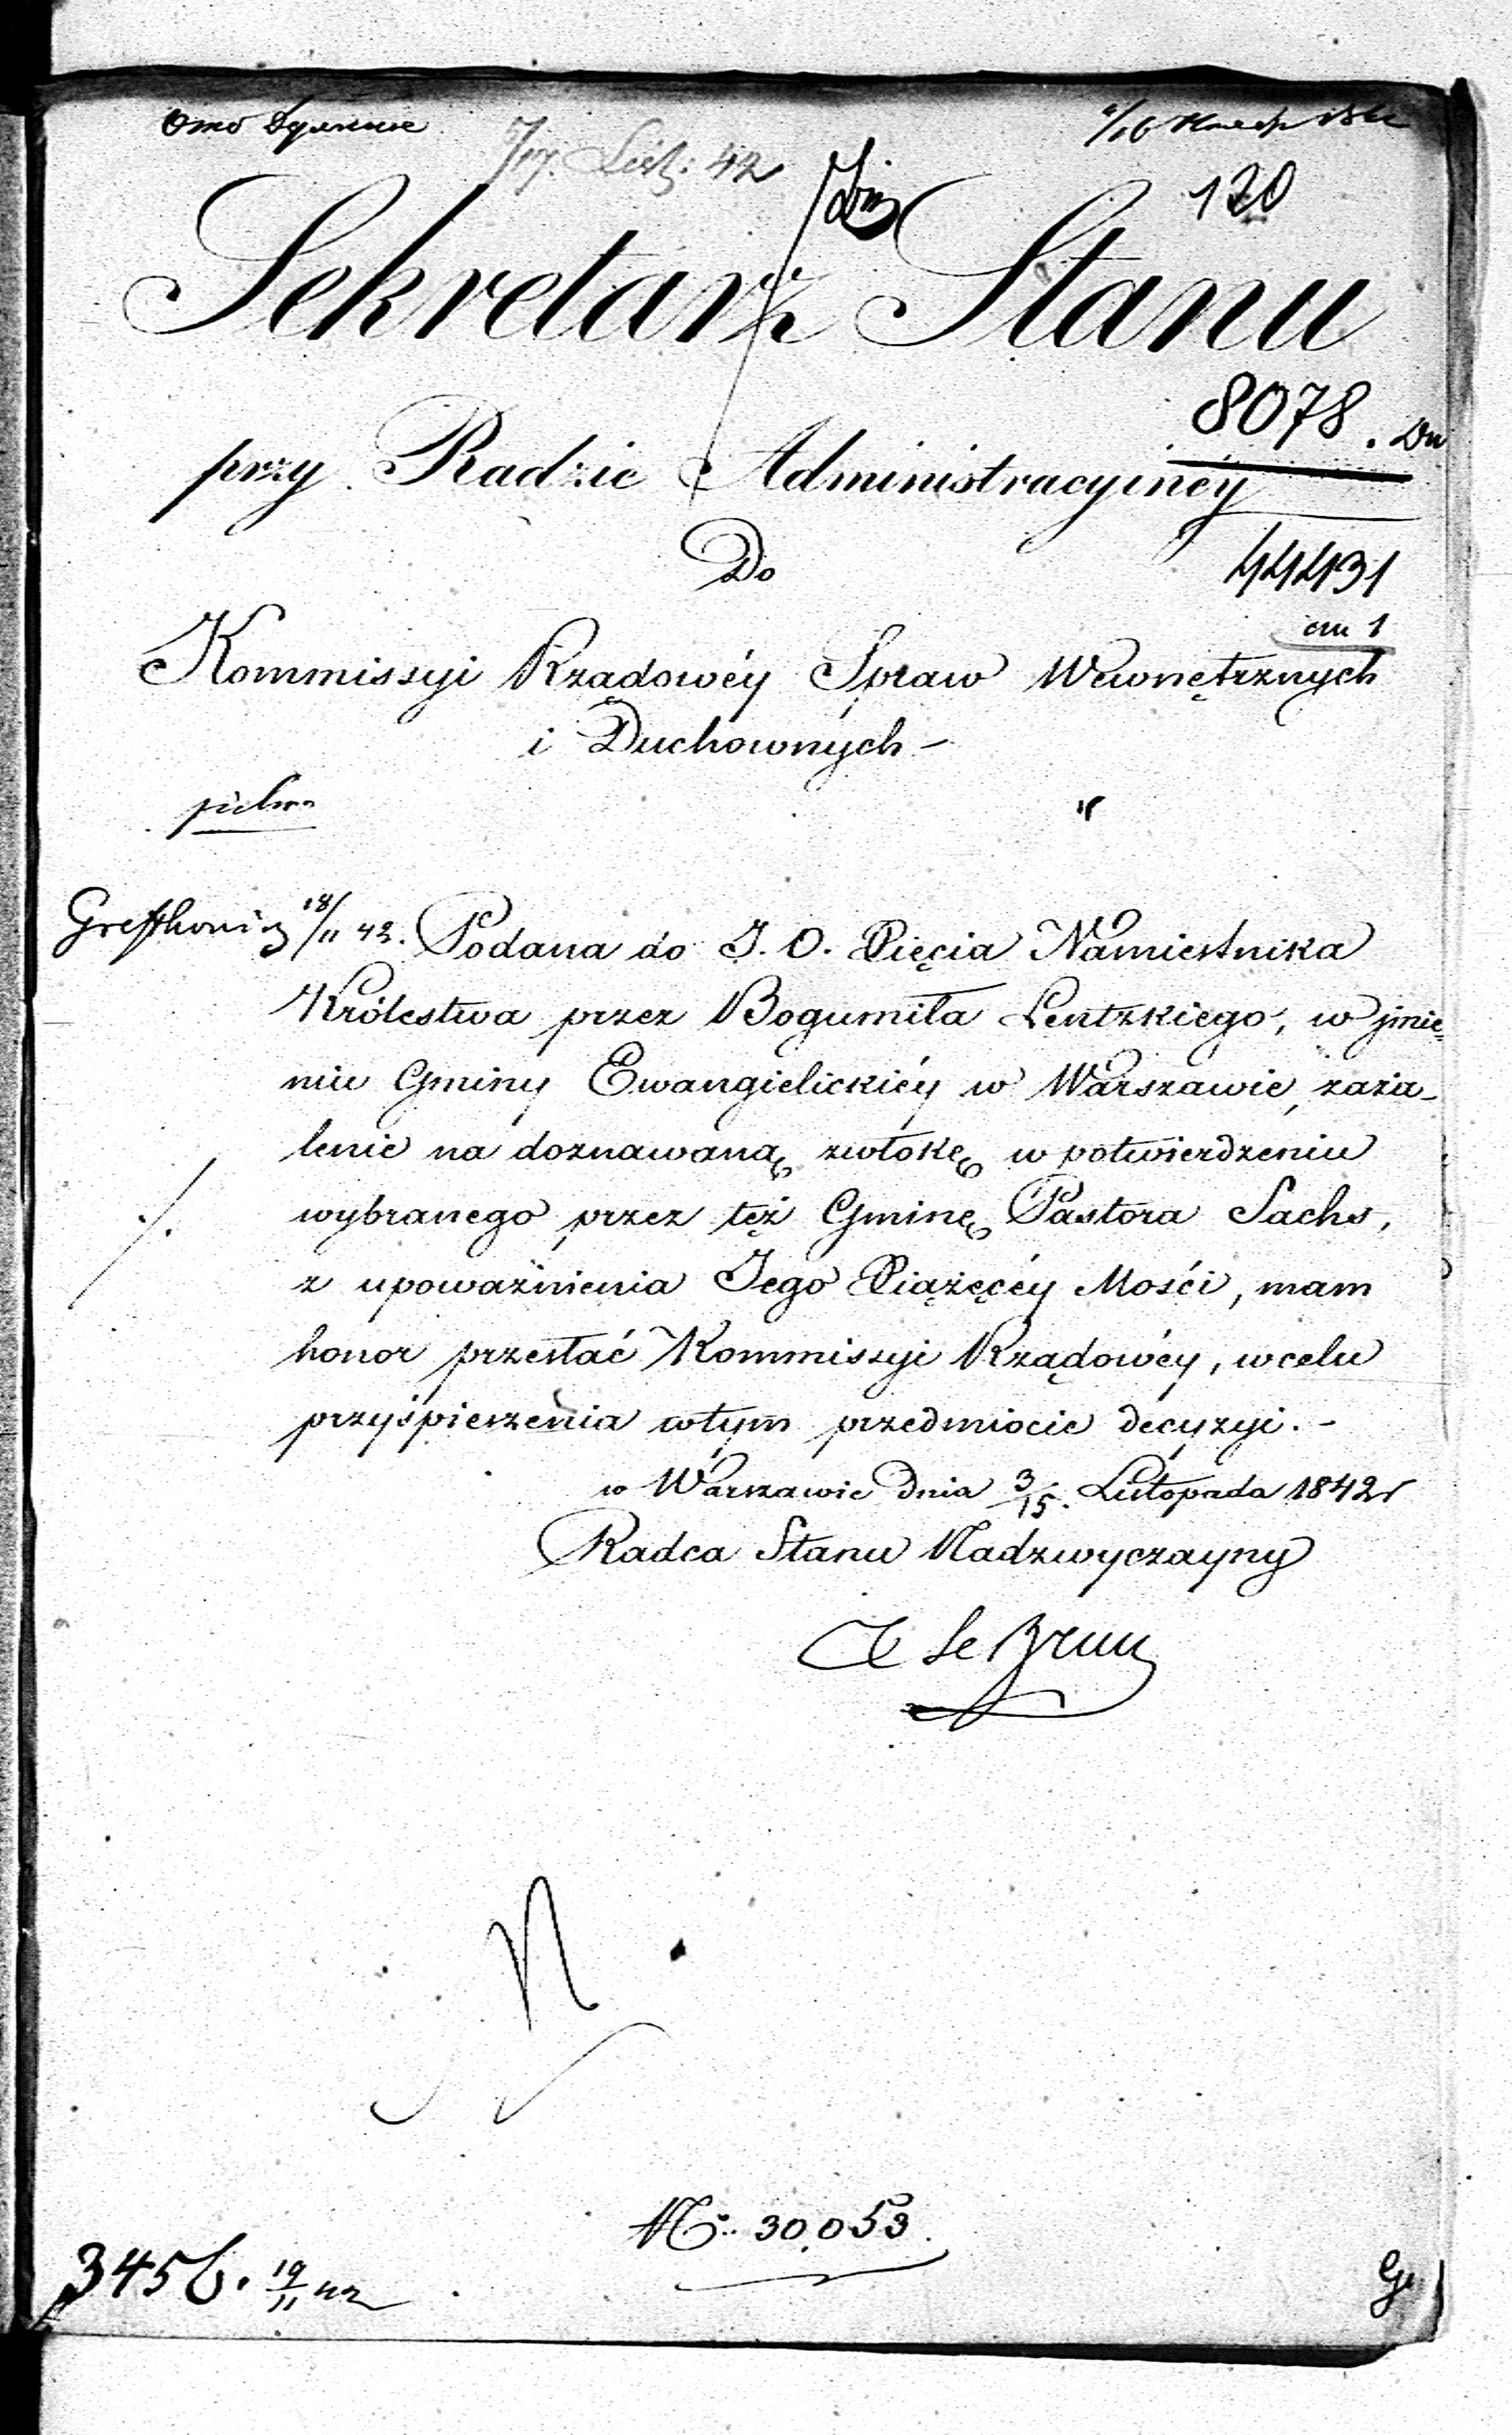 120
Sekretarz Stanu
8078.
przy Radzie Administracyinéy
Do
44431
Kommissyi Rządowéy Spraw Wewnętrznych
i Duchownych -
pilno
18/11 42. Podana do J. O. Xięcia Namiestnika
Królestwa przez Bogumiła Lentzkiego, w jmie=
niu Gminy Ewangielickiéy w Warszawie, zaża-
lenie na doznawaną zwłokę w potwierdzeniu
wybranego przez tęż Gminę Pastora Sachs,
z upoważnienia Jego Xiążęcéy Mości, mam
honor przesłać Kommissyi Rządowéy, w celu
przyśpieszenia w tym przedmiocie decyzyi. -
w Warszawie dnia 3/15. Listopada 1842 r
Radca Stanu Nadzwyczayny
Le Brun
№ 30,053.
3456. 19/11 42